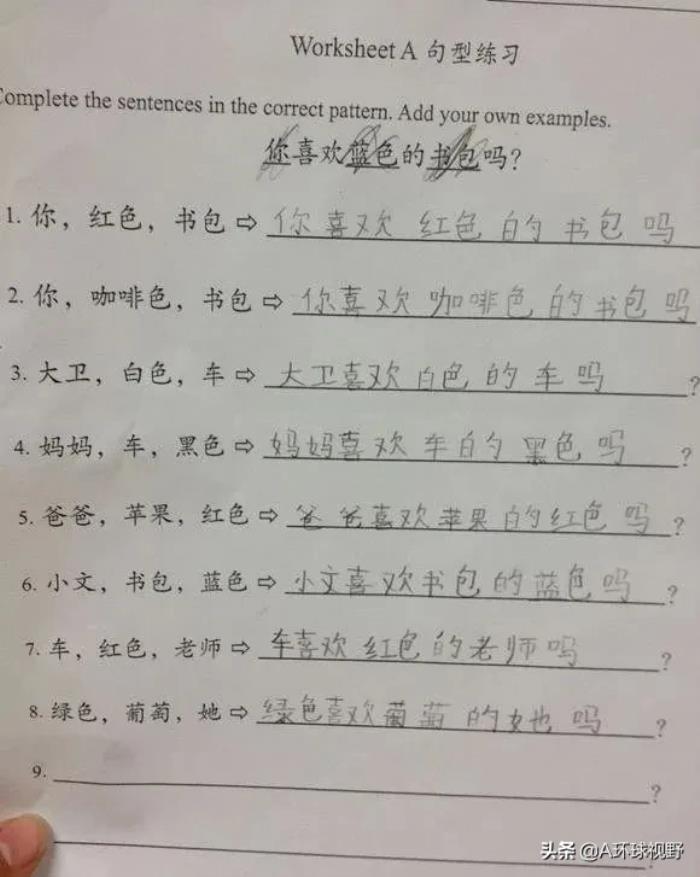 Worksheet A 句型练习
Complete the sentences in the correct pattern. Add your own examples.
你喜欢蓝色的书包吗?
1. 你, 红色, 书包 ⇨ 你喜欢 红色 的 书包 吗
2. 你, 咖啡色, 书包 ⇨ 你喜欢 咖啡色 的书包 吗
3. 大卫, 白色, 车 ⇨ 大卫喜欢 白色 的 车 吗 ?
4. 妈妈, 车, 黑色 ⇨ 妈妈喜欢 车的 黑色 吗 ?
5. 爸爸, 苹果, 红色 ⇨ 爸爸喜欢苹果 的红色 吗 ?
6. 小文, 书包, 蓝色 ⇨ 小文喜欢书包 的 蓝色 吗 ?
7. 车, 红色, 老师 ⇨ 车喜欢 红色 的老师吗 ?
8. 绿色, 葡萄, 她 ⇨ 绿色喜欢葡萄 的她 吗 ?
9. ?
头条 @A环球视野